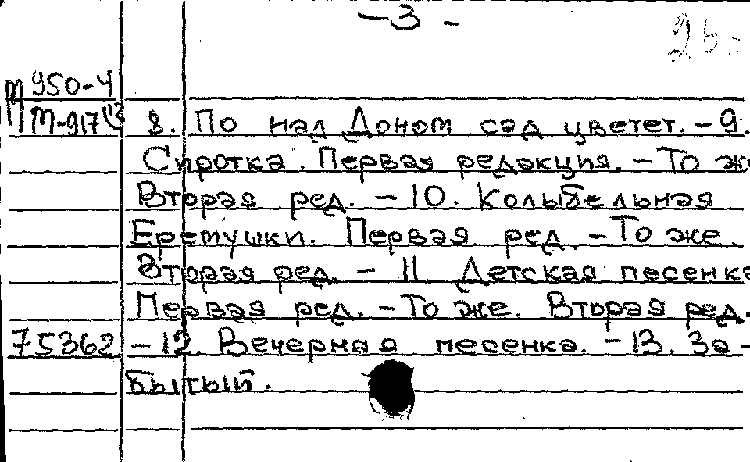 -3-
26.
М950-4
М-917/13 8. По над Доном сад цветет. - 9.
Сиротка. Первая редакция. - То же
Вторая ред. - 10. Колыбельная
Еремушки. Первая ред. - То же.
Вторая ред. - 11 Детская песенка
Первая ред. - То же. Вторая ред.
75362 - 12. Вечерная песенка. - 13. За-
бытый.